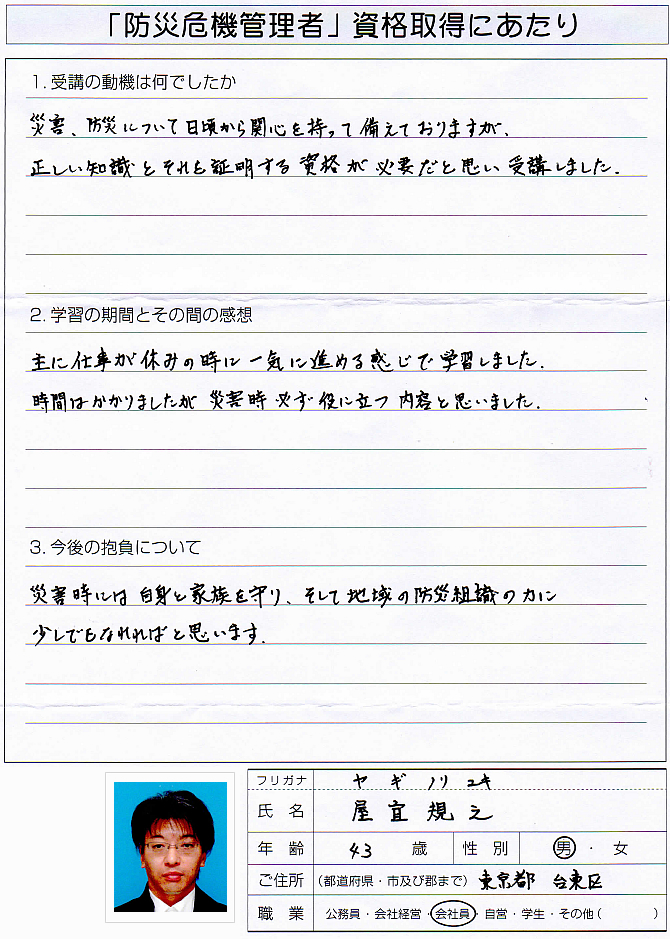 「防災危機管理者」資格取得にあたり
1. 受講の動機は何でしたか
災害、防災について日頃から関心を持って備えておりますが、
正しい知識とそれを証明する資格が必要だと思い受講しました.
2. 学習の期間とその間の感想
主に仕事が休みの時に一気に進める感じで学習しました.
時間はかかりましたが災害時必ず役に立つ内容と思いました.
3. 今後の抱負について
災害時には自身と家族を守り、そして地域の防災組織の力に
少しでもなれればと思います.
フリガナ ヤギ ノリユキ
氏名 屋宜規之
年齢 43 歳 性別 男・女
ご住所 (都道府県・市及び郡まで) 東京都 台東区
職業 公務員・会社経営・会社員・自営・学生・その他 ( )